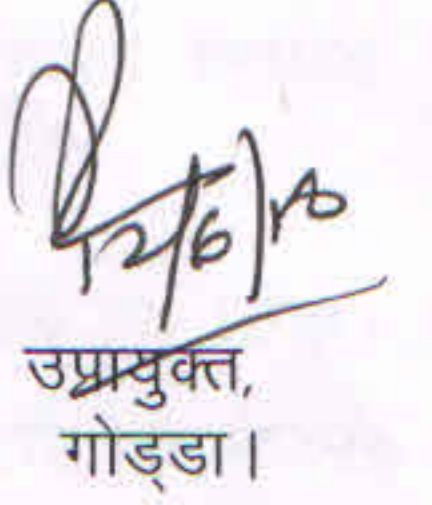 12/6/18
उपायुक्त,
गोड्डा।